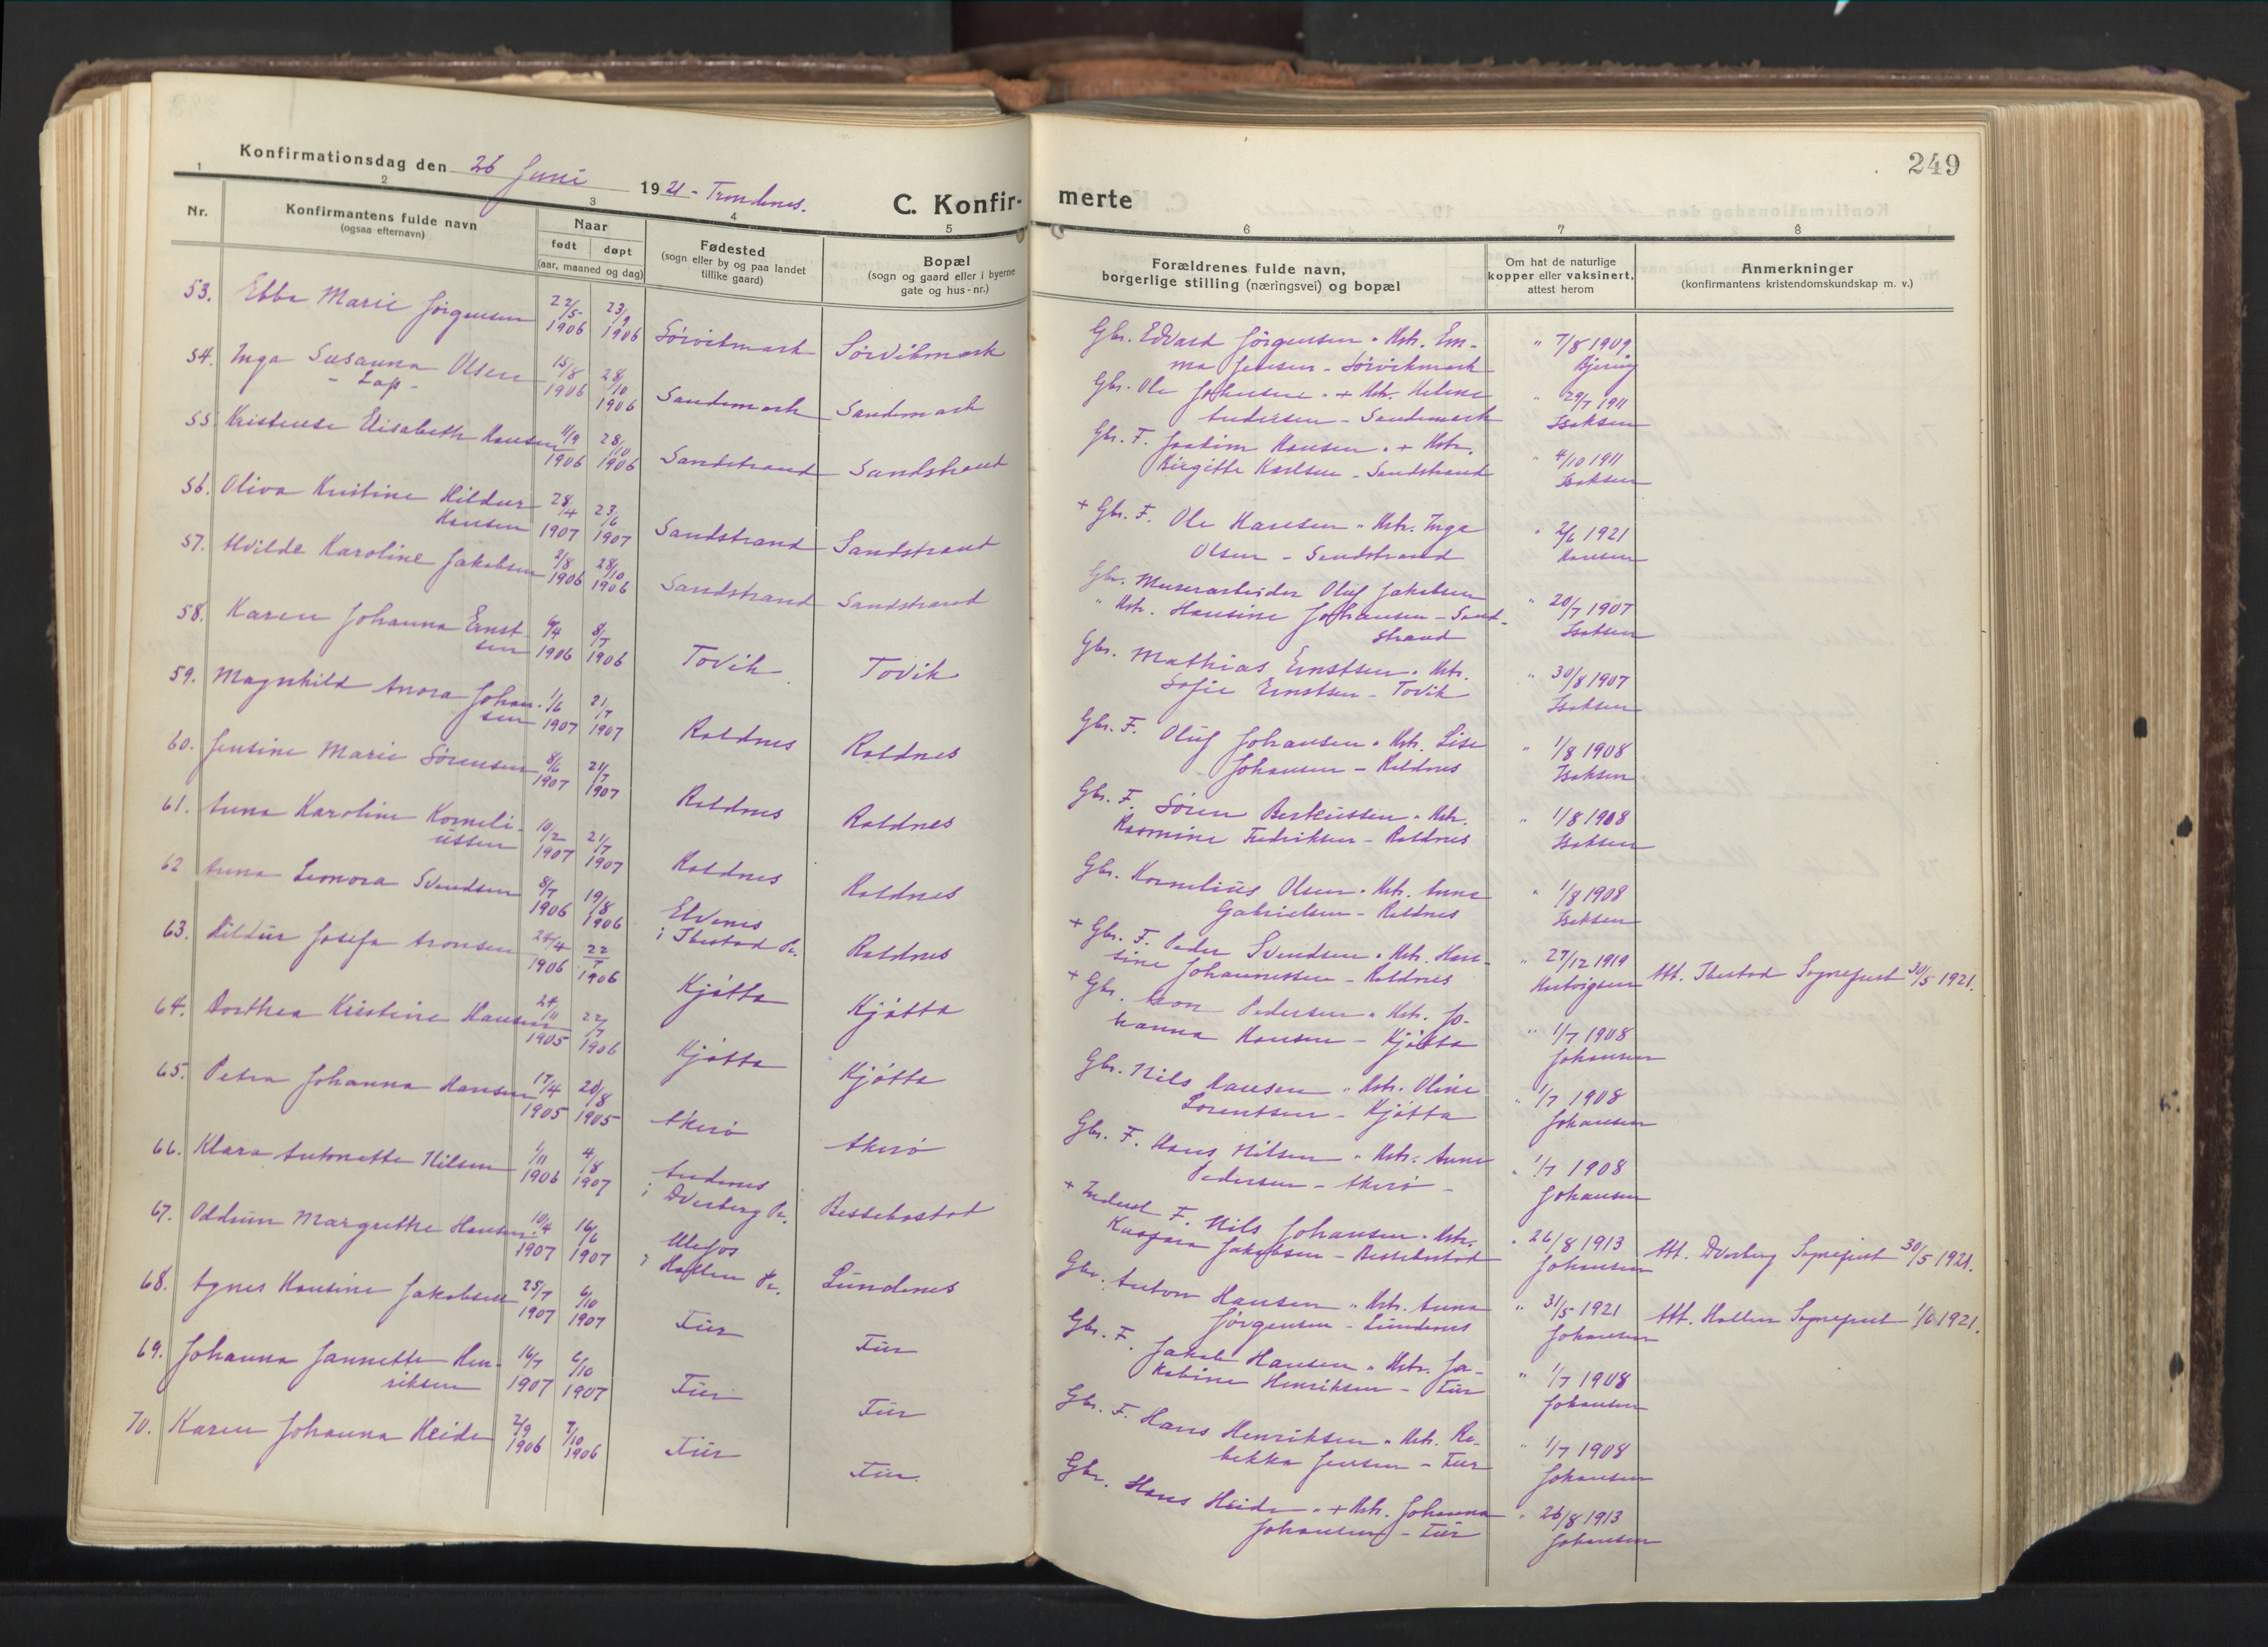 Konfirmationsdag den 26 Juni 1921 - Trondenes.
C. Konfir-
1
2
3
4
5
Nr.
Konfirmantens fulde navn
(ogsaa efternavn)
Naar
født
døpt
(aar, maaned og dag)
Fødested
(sogn eller by og paa landet
tillike gaard)
Bopæl
(sogn og gaard eller i byerne
gate og hus-nr.)
53. Ebba Marie Jørgensen 22/5 1906 23/9 1906 Sørvikmark Sørvikmark
54. Inga Susanna Olsen 15/8 1906 28/10 1906 Sandemark Sandemark
- Lap -
55 Kristense Elisabeth Hansen 11/9 1906 28/10 1906 Sandstrand Sandstrand
56. Oliva Kristine Hildur 28/4 1907 23/6 1907 Sandstrand Sandstrand
Hansen
57. Alvilde Karoline Jakobsen 2/8 1906 28/10 1906 Sandstrand Sandstrand
58. Karen Johanna Ernst- 6/4 1906 8/7 1906 Tovik Tovik
sen
59. Magnhild Anora Johan- 1/6 1907 21/7 1907 Roldnes Roldnes
sen
60. Jensine Marie Sørensen 8/6 1907 21/7 1907 Roldnes Roldnes
61. Anna Karoline Korneli- 10/2 1907 21/7 1907 Roldnes Roldnes
ussen
62 Anna Leonora Svendsen 8/7 1906 19/8 1906 Elvenes Roldnes
i Ibestad Pr.
63. Hildur Josefa Aronsen 24/4 1906 22/7 1906 Kjøtta Kjøtta
64. Dorthea Kristine Hansen 24/11 1905 22/7 1906 Kjøtta Kjøtta
65. Petra Johanna Hansen 17/4 1905 20/8 1905 Akerø Akerø
66. Klara Antonette Nilsen 1/11 1906 4/8 1907 Andenes Bessebostad
i Dverberg Pr.
67. Oddrun Margrethe Hansen 10/4 1907 16/6 1907 Ulefos Lundenes
i Hollen Pr.
68. Agnes Hansine Jakobsen 25/7 1907 6/10 1907 Fur Fur
69. Johanna Jannette Hen- 16/7 1907 6/10 1907 Fur Fur
riksen
70. Karen Johanna Heide 2/9 1906 7/10 1906 Fur Fur.
249
merte
6
7
8
Forældrenes fulde navn,
borgerlige stilling (næringsvei) og bopæl
Om hat de naturlige
kopper eller vaksinert,
attest herom
Anmerkninger
(konfirmantens kristendomskundskap m. v.)
Gbr. Edvard Jørgensen " Hstr. Em- " 7/8 1909
ma Jensen - Sørvikmark Bjering
Gbr. Ole Johansen " + Hstr. Helene " 29/7 1911
Andersen - Sandemark Isaksen
Gbr. F. Joakim Hansen " + Hstr. " 4/10 1911
Birgitte Karlsen - Sandstrand Isaksen
+ Gbr. F. Ole Hansen " Hstr. Inga " 2/6 1921
Olsen - Sandstrand Hansen
Gbr. Murerarbeider Oluf Jakobsen " 20/7 1907
" Hstr. Hansine Johansen - Sand- Isaksen
strand
Gbr. Mathias Ernstsen " Hstr. " 30/8 1907
Sofie Ernstsen - Tovik Isaksen
Gbr. F. Oluf Johansen " Hstr. Lise " 1/8 1908
Johansen - Roldnes Isaksen
Gbr. F. Søren Berteussen " Hstr. " 1/8 1908
Rasmine Fredriksen - Roldnes Isaksen
Gbr. Kornelius Olsen " Hstr. Anna " 1/8 1908
Gabrielsen - Roldnes Isaksen
+ Gbr. F. Peder Svendsen " Hstr. Han- " 27/12 1919
sine Johannessen - Roldnes Hartvigsen Att. Ibestad Sogneprest 30/5 1921.
+ Gbr. Aron Pedersen " Hstr. Jo- " 1/7 1908
hanna Hansen - Kjøtta Johansen
Gbr. Nils Hansen " Hstr. Oline " 1/7 1908
Lorentsen - Kjøtta Johansen
Gbr. F. Hans Nilsen " Hstr. Anna " 1/7 1908
Pedersen - Akerø - Johansen
+ Inderst F. Nils Johansen " Hstr. " 26/8 1913
Kaspara Jakobsen - Bessebostad Johansen Att. Dverberg Sogneprest 30/5 1921.
Gbr. Anton Hansen " Hstr. Anna " 31/5 1921
Jørgensen - Lundenes Johansen Att. Hollen Sogneprest 1/6 1921.
Gbr. F. Jakob Hansen " Hstr. Ja- " 1/7 1908
kobine Henriksen - Fur Johansen
Gbr. F. Hans Henriksen " Hstr. Re- " 1/7 1908
bekka Jensen - Fur Johansen
Gbr. Hans Heide " + Hstr. Johanna " 26/8 1913
Johansen - Fur Johansen